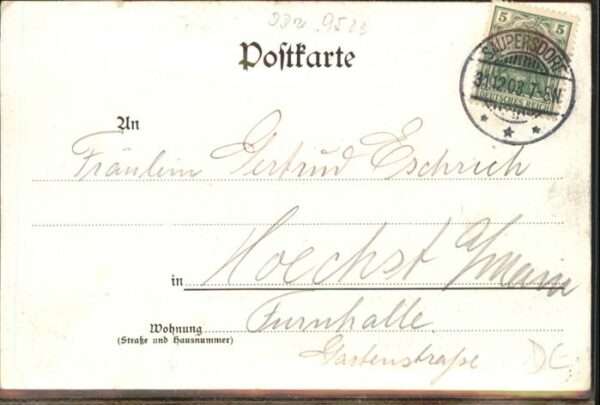 5 5
Postkarte
SAUPERSDORF
31.12.03.7-8N.
DEUTSCHES REICH
An
Fräulein Gertrud Eschrich
in Hoechst a/Main
Wohnung Turnhalle
(Straße und Hausnummer)
Gartenstraße